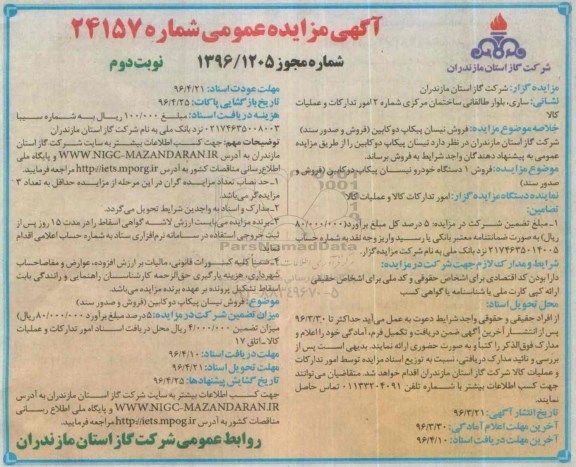 آگهی مزایده عمومی شماره ۲۴۱۵۷
شماره مجوز ۱۳۹۶/۱۲۰۵
نوبت دوم
شرکت گاز استان مازندران
مزایده گزار: شرکت گاز استان مازندران
نشانی: ساری، بلوار طالقانی ساختمان مرکزی شماره ۲ امور تدارکات و عملیات
کالا
خلاصه موضوع مزایده: فروش نیسان پیکاپ دو کابین (فروش و صدور سند)
شرکت گاز استان مازندران در نظر دارد نیسان پیکاپ دو کابین را از طریق مزایده
عمومی به پیشنهاد دهندگان واجد شرایط به فروش برساند.
موضوع مزایده: فروش ۱ دستگاه خودرو نیسان پیکاپ دو کابین (فروش و
صدور سند)
نماینده دستگاه مزایده گزار: امور تدارکات کالا و عملیات کالا
تضامین:
۱_مبلغ تضمین شرکت در مزایده: ۵ درصد کل مبلغ برآورد (۸۰/۰۰۰/۰۰۰
ریال) به صورت ضمانتنامه معتبر بانکی یا رسید واریز وجه نقد به شماره حساب
۲۱۷۴۶۳۵۰۱۴۰۰۵ نزد بانک ملی به نام شرکت مزایده گزار
شرایط و مدارک لازم جهت شرکت در مزایده:
دارا بودن کد اقتصادی برای اشخاص حقوقی و کد ملی برای اشخاص حقیقی
ارائه کپی کارت ملی یا شناسنامه یا گواهی کسب
محل تحویل اسناد:
از افراد حقیقی و حقوقی واجد شرایط دعوت به عمل می آید حداکثر تا ۹۶/۳/۳۰
پس از انتشار آخرین آگهی ضمن دریافت و تکمیل فرم، آمادگی خود را اعلام و
مدارک فوق الذکر را کتبا و به صورت حضوری ارائه نمایند. بدیهی است پس از
بررسی و تائید مدارک دریافتی، نسبت به توزیع اسناد مزایده توسط امور تدارکات
و عملیات کالا شرکت گاز استان مازندران اقدام خواهد شد. متقاضیان می توانند
جهت کسب اطلاعات بیشتر با شماره تلفن ۰۱۱۳۳۲۰۴۰۹۱ تماس حاصل
نمایند.
تاریخ انتشار آگهی: ۹۶/۳/۲۱
آخرین مهلت اعلام آمادگی: ۹۶/۳/۳۰
آخرین مهلت دریافت اسناد: ۹۶/۴/۱۰
مهلت عودت اسناد: ۹۶/۴/۲۱
تاریخ بازگشایی پاکات: ۹۶/۴/۲۵
هزینه دریافت اسناد: مبلغ ۱۰۰/۰۰۰ ریال به شماره سیبا
۰۲۱۷۴۶۳۵۰۰۸۰۰۳ نزد بانک ملی به نام شرکت گاز استان مازندران
توضیحات مهم: جهت کسب اطلاعات بیشتر به سایت شرکت گاز استان
مازندران به آدرس WWW.NIGC-MAZANDARAN.IR و پایگاه ملی
اطلاع رسانی مناقصات کشور به آدرس http://iets.mporg.ir مراجعه فرمایید.
۱_حد نصاب تعداد مزایده گران در این مرحله از مزایده حداقل به تعداد ۳
مزایده گر می باشد.
۲_مدارک و اسناد به واجدین شرایط تحویل می گردد.
۳_برنده مزایده می بایست ارزش لاشه گواهی اسقاط را در مدت ۱۵ روز پس از
ثبت خروجی استفاده در سامانه نرم افزاری ستاد به شماره حساب اعلامی اقدام
نماید.
۴_ضمنا کلیه کسورات قانونی، مالیات بر ارزش افزوده، عوارض و مفاصاحساب
شهرداری، هزینه بارگیری حق الزحمه کارشناسان راهنمایی و رانندگی بابت
اسقاط تشکیل پرونده بر عهده برنده مزایده می باشد.
موضوع: فروش نیسان پیکاپ دو کابین (فروش و صدور سند)
میزان تضمین شرکت در مزایده: ۵ درصد مبلغ برآورد ۸۰/۰۰۰/۰۰۰ ریال)
میزان تضمین ۴/۰۰۰/۰۰۰ ریال محل دریافت اسناد امور تدارکات و عملیات
کالا_اتاق ۱۷
مهلت دریافت اسناد: ۹۶/۴/۱۰
مهلت تحویل اسناد: ۹۶/۴/۲۱
تاریخ گشایش پیشنهادها: ۹۶/۴/۲۵
جهت کسب اطلاعات بیشتر به سایت شرکت گاز استان مازندران به آدرس
WWW.NIGC-MAZANDARAN.IR و پایگاه ملی اطلاع رسانی
مناقصات کشور به آدرس http://iets.mpog.ir مراجعه فرمایید.
روابط عمومی شرکت گاز استان مازندران